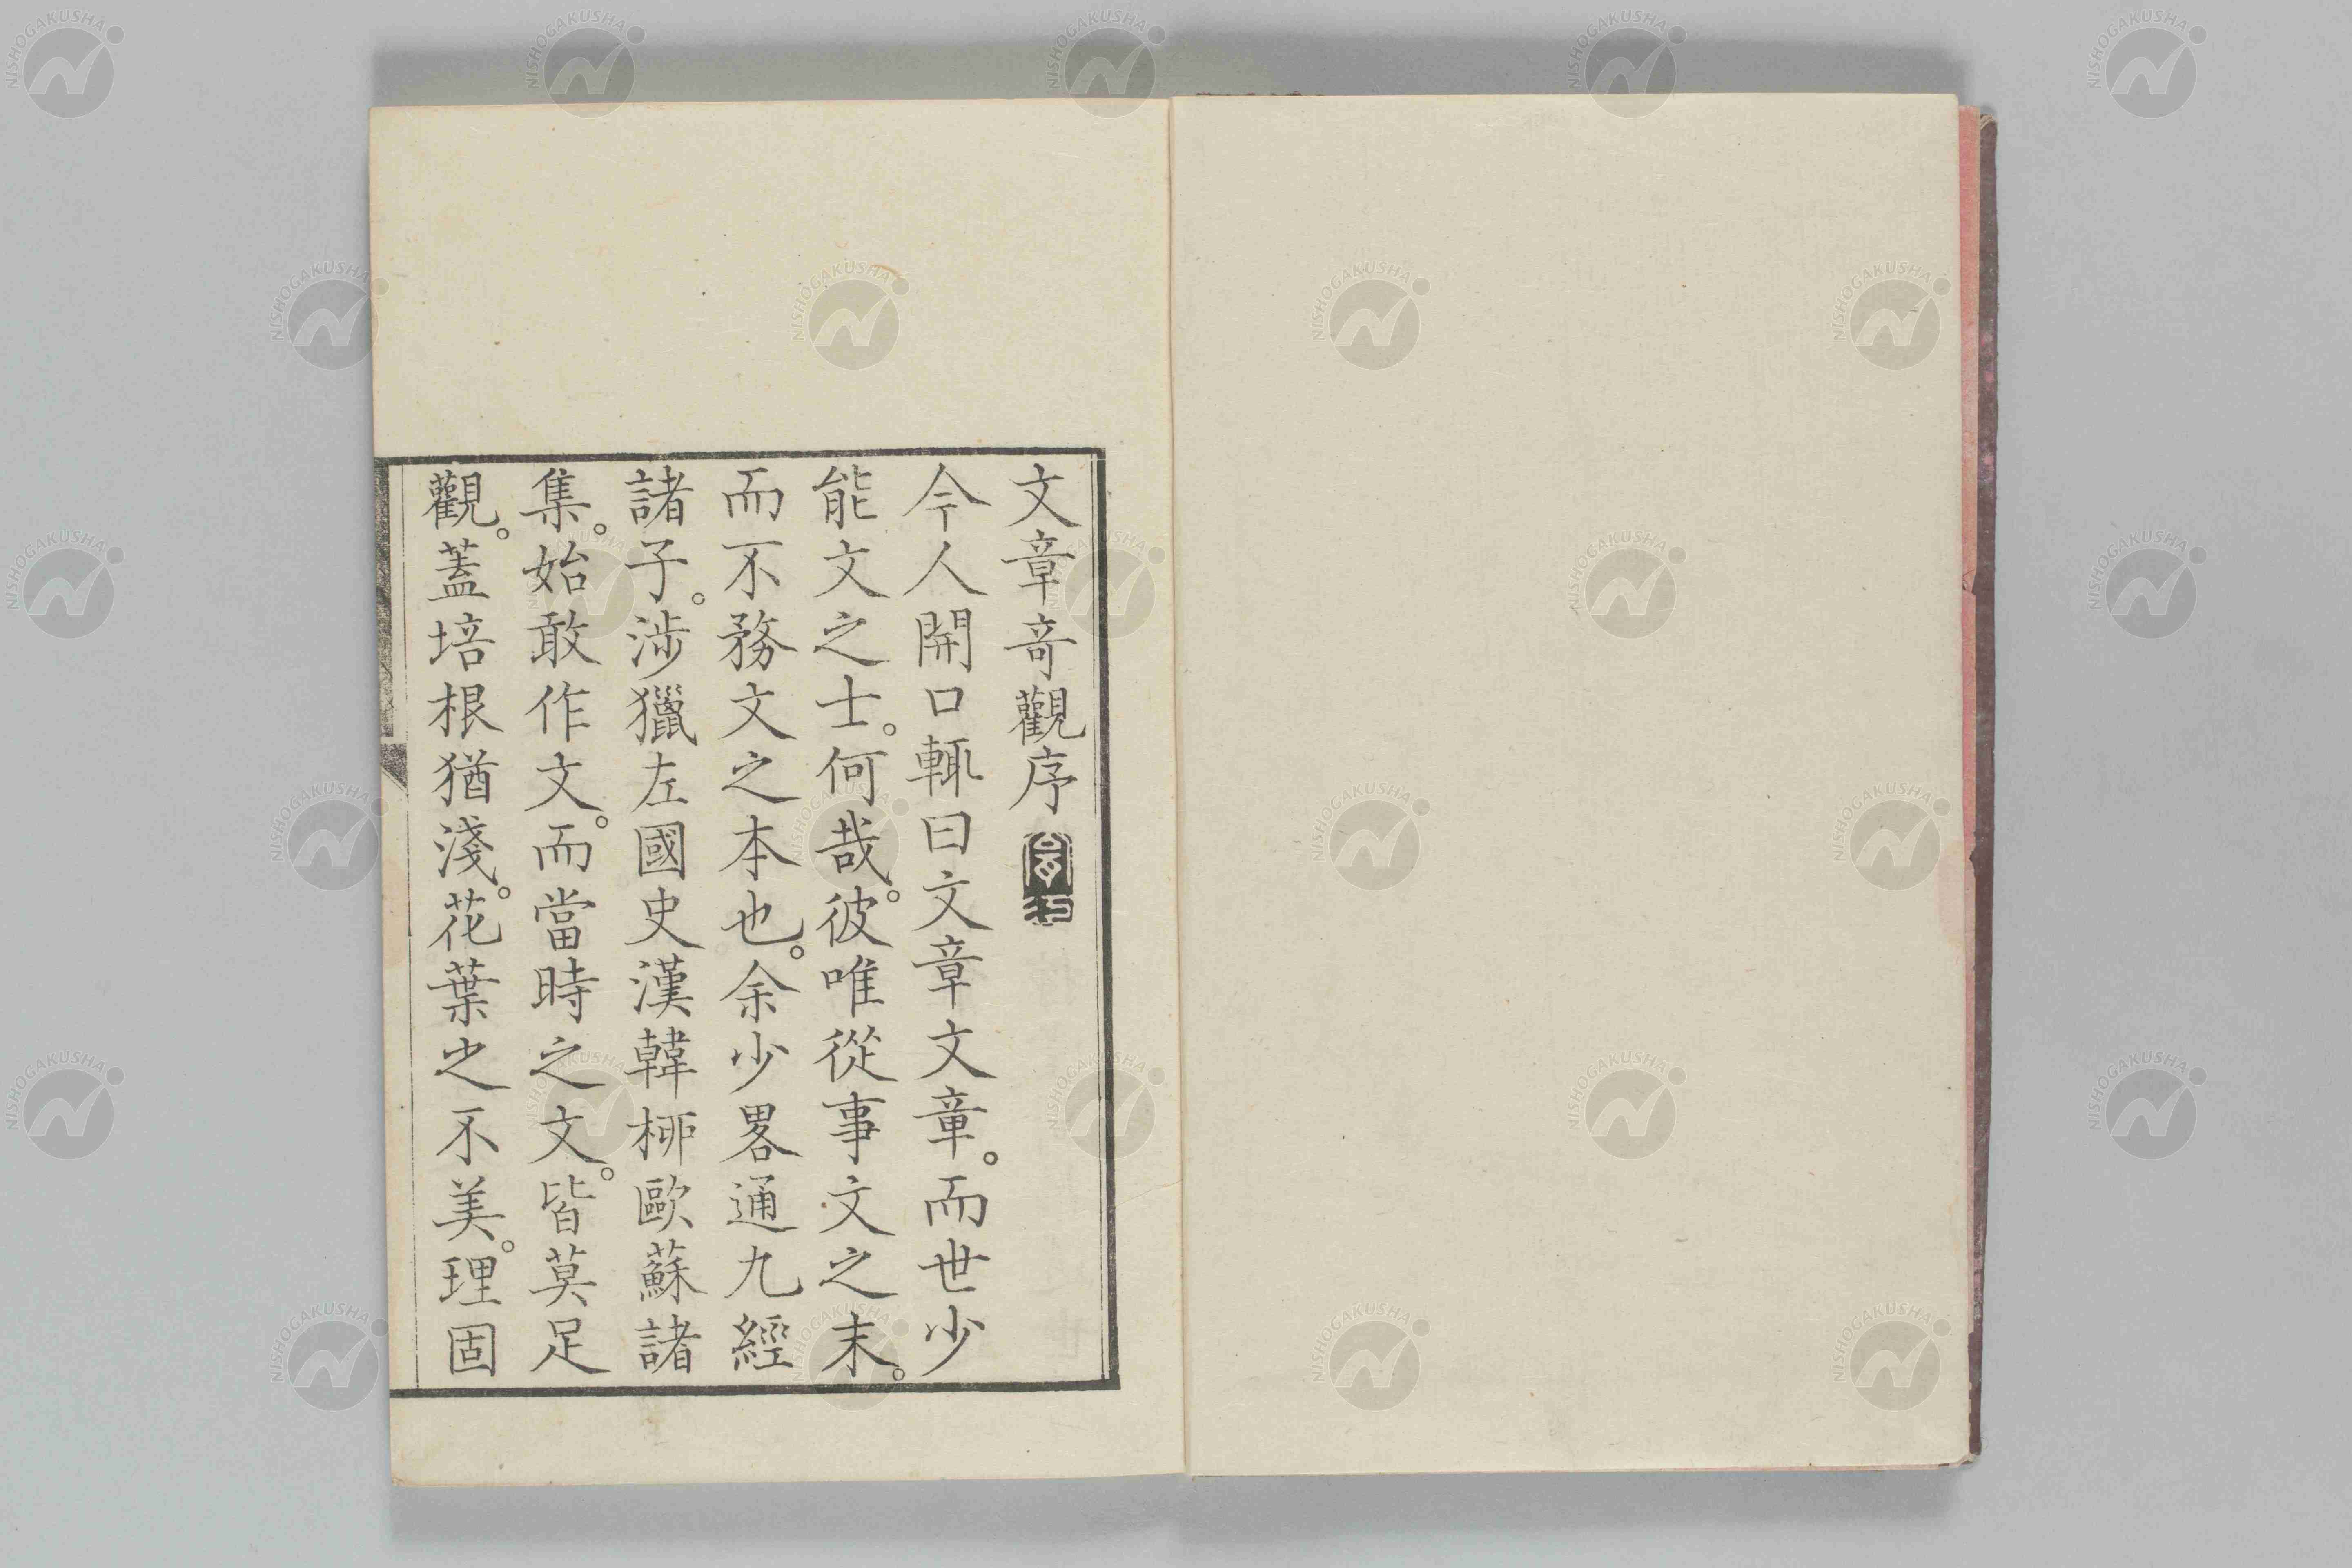 文章奇觀序
今人開口輙曰文章文章。而世少
能文之士。何哉。彼唯從事文之末。
而不務文之本也。余少畧通九經
諸子。涉獵左國史漢韓桺歐蘇諸
集。始敢作文。而當時之文。皆莫足
觀。蓋培根猶淺。花葉之不美。理固
NISHOGAKUSHA